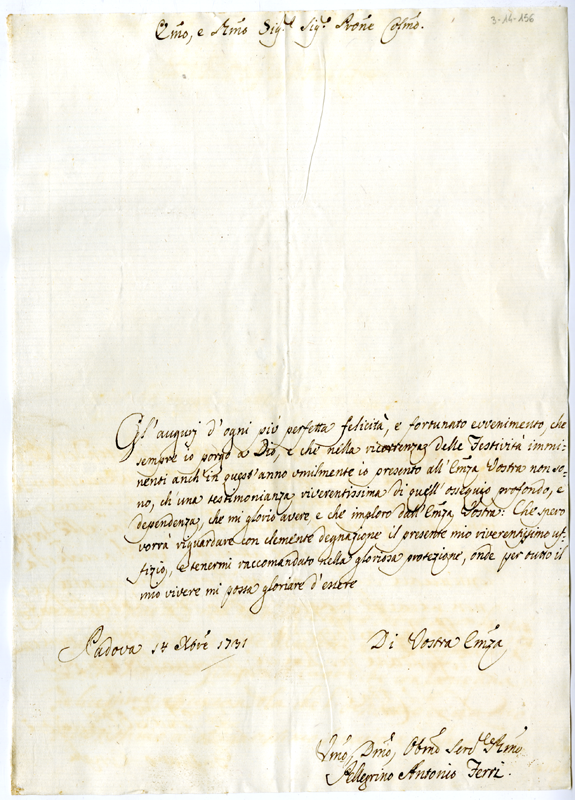 3-14-156
Em̃o, e Rm̃o Sig.r Sig.r Pron̄e Cols̄mo.
Gl'augurj d'ogni più perfetta felicità, e fortunato evvenimento, che
sempre io porgo a Dio, e che nella ricorrenza delle Festività immi-
nenti anch'in quest'anno umilmente io presento all'Em̃za Vostra non so-
no, ch'una testimonianza riverentissima di quell'ossequio profondo, e
dependenza, che mi glorio avere e che imploro dall'Em̃za Vostra. Che spero
vorrà riguardare con clemente degnazione il presente mio riverentissimo uf-
fizio, e tenermi raccomandato nella gloriosa protezione, onde per tutto il
mio vivere mi possa gloriare d'essere
Padova 14 Xbre 1731
Di Vostra Em̃za
Um̃o, Dm̃o, Obm̃o Serv.re Rm̃o
Pellegrino Antonio Ferri.